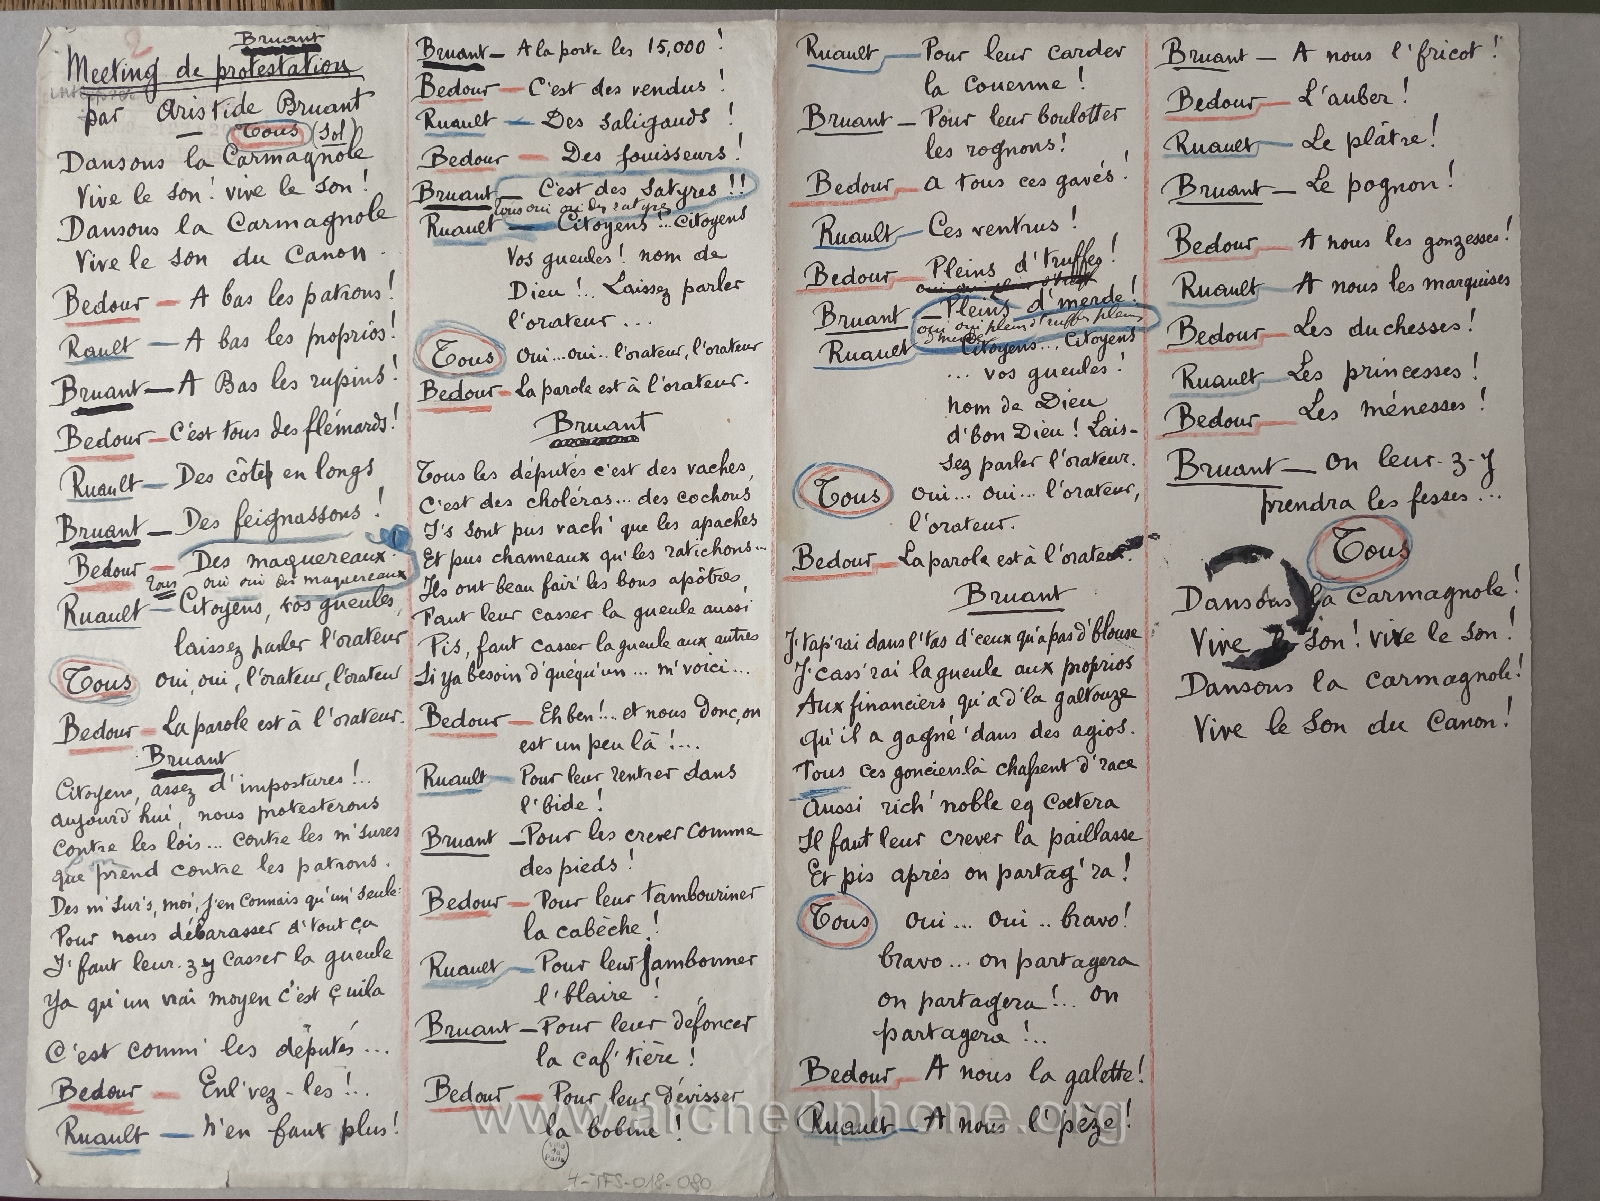 2
Bruant
Meeting de protestation
interprété
par Aristide Bruant
Tous (Sol)
Dansons la Carmagnole
Vive le son! vive le son!
Dansons la Carmagnole
Vive le son du Canon.
Bedour — A bas les patrons!
Rault — A bas les proprios!
Bruant — A Bas les rupins!
Bedour — C'est tous des flémards!
Ruault — Des côtes en longs
Bruant — Des feignassons!
Bedour — Des maquereaux.
Tous oui oui des maquereaux
Ruault — Citoyens, vos gueules,
laissez parler l'orateur
Tous oui, oui, l'orateur, l'orateur
Bedour — La parole est à l'orateur.
Bruant
Citoyens, assez d'impostures!..
aujourd'hui, nous protesterons
contre les lois... contre les m'sures
que prend contre les patrons.
Des m'sur's, moi, j'en connais qu'un' seule:
Pour nous débarasser d'tout ça
I' faut leur-z-y casser la gueule
Ya qu'un vrai moyen c'est çuila
C'est comm' les députés...
Bedour — Enl'vez-les!..
Ruault — N'en faut plus!
Bruant — A la porte les 15,000!
Bedour — C'est des vendus!
Ruault — Des saligauds!
Bedour — Des jouisseurs!
Bruant — C'est des satyres!!
Tous oui oui des satyres
Ruault — Citoyens!.. Citoyens
Vos gueules! nom de
Dieu!.. Laissez parler
l'orateur...
Tous oui...oui.. l'orateur, l'orateur
Bedour — La parole est à l'orateur.
Bruant
Tous les députés c'est des vaches,
C'est des choléras... des cochons,
I's sont pus vach' que les apaches
Et pus chameaux qu'les ratichons...
Ils ont beau fair' les bons apôtres,
Faut leur casser la gueule aussi
Pis, faut casser la gueule aux autres
Si ya besoin d'quéqu'un... m'voici...
Bedour — Eh ben!.. et nous donc, on
est un peu là!...
Ruault — Pour leur rentrer dans
l'bide!
Bruant — Pour les crever comme
des pieds!
Bedour — Pour leur tambouriner
la cabèche!
Ruault — Pour leur jambonner
l'blaire!
Bruant — Pour leur défoncer
la caf'tière!
Bedour — Pour leur dévisser
la bobine!
4-TFS-018-080
Ruault — Pour leur carder
la couenne!
Bruant — Pour leur boulotter
les rognons!
Bedour — A tous ces gavés!
Ruault — Ces ventrus!
Bedour — Pleins d'truffes!
Bruant — Pleins d'merde!
oui oui pleins d'truffes pleins
d'merde
Ruault Citoyens... Citoyens
... vos gueules!
nom de Dieu
d'bon Dieu! Lais-
sez parler l'orateur.
Tous oui... oui... l'orateur,
l'orateur.
Bedour — La parole est à l'orateur.
Bruant
J'tap'rai dans l'tas d'ceux qu'a pas d'blouse
J'cass'rai la gueule aux proprios
Aux financiers qu'a d'la galtouze
qu'il a gagné dans des agios.
Tous ces gonciers-là chassent d'race
Aussi rich' noble eq Cœtera
Il faut leur crever la paillasse
Et pis après on partag'ra!
Tous oui... oui.. bravo!
bravo... on partagera
on partagera!.. on
partagera!..
Bedour — A nous la galette!
Ruault — A nous l'pèze!
Bruant — A nous l'fricot!
Bedour — L'auber!
Ruault — Le plâtre!
Bruant — Le pognon!
Bedour — A nous les gonzesses!
Ruault — A nous les marquises
Bedour — Les duchesses!
Ruault — Les princesses!
Bedour — Les ménesses!
Bruant — on leur-z-y
prendra les fesses...
Tous
Dansons la Carmagnole!
Vive le son! vive le son!
Dansons la Carmagnole!
Vive le son du Canon!
www.archeophone.org